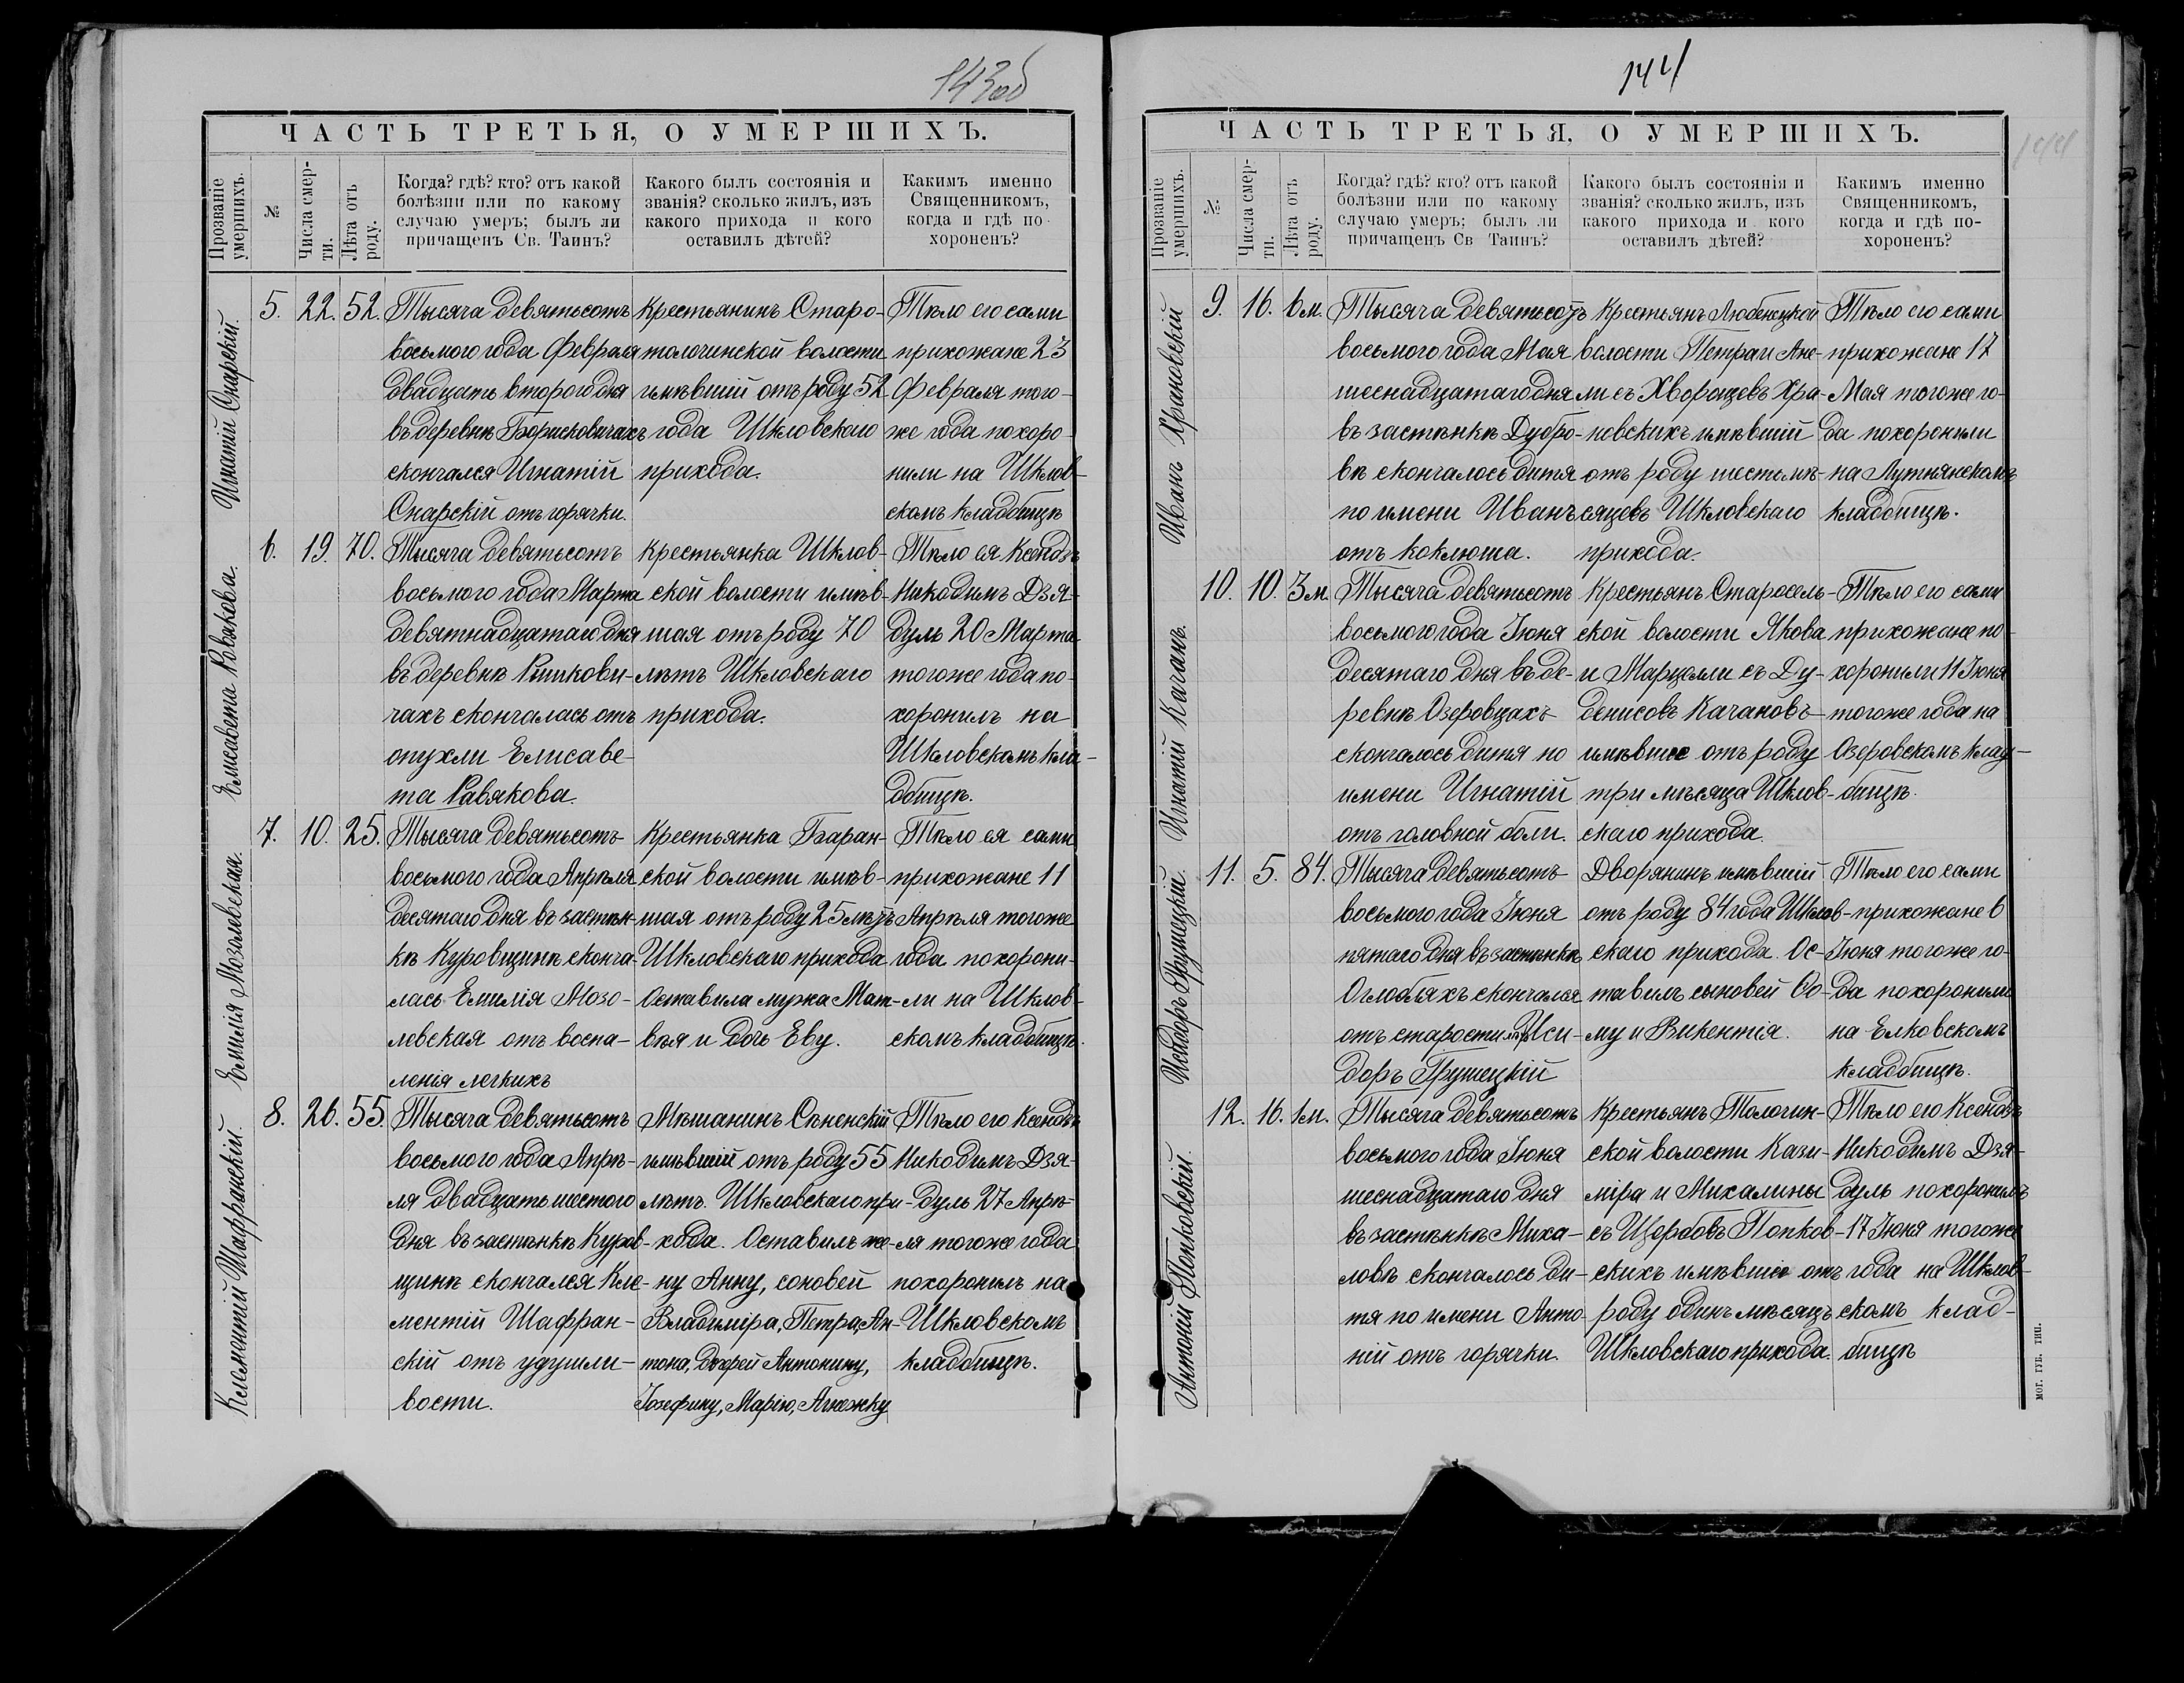 143об
ЧАСТЬ ТРЕТЬЯ, О УМЕРШИХЪ.
Прозваніе умершихъ.
№
Числа смер-
ти.
Лѣта отъ
роду.
Когда? гдѣ? кто? отъ какой
болѣзни или по какому
случаю умеръ; былъ ли
причащенъ Св. Таинъ?
Какого былъ состоянія и
званія? сколько жилъ, изъ
какого прихода и кого
оставилъ дѣтей?
Какимъ именно
Священникомъ,
когда и гдѣ по-
хороненъ?
Игнатій Снарскій.
5. 22. 52.
Тысяча девятьсотъ
восьмого года Февраля
двадцать второго дня
въ деревнѣ Борисковичахъ
скончался Игнатій
Снарскій отъ горячки.
Крестьянинъ Старо-
толочинской волости
имѣвшій отъ роду 52
года Шкловского
прихода.
Тѣло его сами
прихожане 23
Февраля того-
же года похоро-
нили на Шклов-
скомъ кладбищѣ
Елисавета Равякова.
6. 19. 70.
Тысяча девятьсотъ
восьмого года Марта
девятнадцатаго дня
въ деревнѣ Рыжкови-
чахъ скончалась отъ
опухли Елисаве-
та Равякова.
Крестьянка Шклов-
ской волости имѣв-
шая отъ роду 70
лѣтъ Шкловскаго
прихода.
Тѣло ея Ксендзъ
Никодимъ Дзя-
дуль 20 Марта
тогоже года по-
хоронилъ на
Шкловскомъ кла-
дбищѣ.
Емилія Мозолевская.
7. 10. 25.
Тысяча девятьсотъ
восьмого года Апрѣля
десятаго дня въ застѣн-
кѣ Куровщинѣ сконча-
лась Емилія Мозо-
левская отъ воспа-
ленія легкихъ
Крестьянка Баран-
ской волости имѣв-
шая отъ роду 25 лѣтъ
Шкловскаго прихода
Оставила мужа Мат-
вѣя и дочь Еву.
Тѣло ея сами
прихожане 11
Апрѣля тогоже
года похорони-
ли на Шклов-
скомъ кладбищѣ.
Клементій Шаффранскій.
8. 26. 55.
Тысяча девятьсотъ
восьмого года Апрѣ-
ля двадцать шестого
дня въ застѣнкѣ Куров-
щинѣ скончался Кле-
ментій Шаффран-
скій отъ удушли-
вости.
Мѣщанинъ Сѣненскій
имѣвшій отъ роду 55
лѣтъ. Шкловскаго при-
хода. Оставилъ же-
ну Анну, соновей
Владиміра, Петра, Ан-
тона, дочрей Антонину,
Іозефину, Марію, Агнежку
Тѣло его Ксендзъ
Никодимъ Дзя-
дуль 27 Апрѣ-
ля тогоже года
похоронилъ на
Шкловскомъ
кладбищѣ.
144
144
ЧАСТЬ ТРЕТЬЯ, О УМЕРШИХЪ.
Прозваніе
умершихъ.
№
Числа смер-
ти.
Лѣта отъ
роду.
Когда? гдѣ? кто? отъ какой
болѣзни или по какому
случаю умеръ; былъ ли
причащенъ Св Таинъ?
Какого былъ состоянія и
званія? сколько жилъ, изъ
какого прихода и кого
оставилъ дѣтей?
Какимъ именно
Священникомъ,
когда и гдѣ по-
хороненъ?
Иванъ Храновскій
9. 16. 6 м.
Тысяча девятьсотъ
восьмого года Мая
шеснадцатаго дня
въ застѣнкѣ Дубро-
вѣ скончалось дитя
по имени Иванъ
отъ коклюша.
Крестьянъ Любенецкой
волости Петра и Ане-
ли съ Хворощевъ Хра-
новскихъ имѣвшій
отъ роду шесть мѣ-
сяцевъ Шкловскаго
прихода.
Тѣло его сами
прихожане 17
Мая тогоже го-
да похоронили
на Лутнянскомъ
кладбищѣ.
Игнатій Качанъ.
10. 10. 3 м.
Тысяча девятьсотъ
восьмого года Іюня
десятаго дня въ де-
ревнѣ Озеровцахъ
скончалось дитя по
имени Игнатій
отъ головной боли.
Крестьянъ Старосель-
ской волости Якова
и Марцели съ Ду-
денисовъ Качановъ
имѣвшее отъ роду
три мѣсяца Шклов-
скаго прихода.
Тѣло его сами
прихожане по-
хоронили 11 Іюня
тогоже года на
Озеровскомъ клад-
бищѣ.
Исидоръ Грушецкій.
11. 5. 84.
Тысяча девятьсотъ
восьмого года Іюня
пятаго дня въ застѣнкѣ
Оглобляхъ скончался
отъ старости лѣтъ Иси-
доръ Грушецкій
Дворянинъ имѣвшій
отъ роду 84 года Шклов-
скаго прихода. Ос-
тавилъ сыновей Фо-
му и Викентія.
Тѣло его сами
прихожане 6
Іюня тогоже го-
да похоронили
на Елковскомъ
кладбищѣ.
Антоній Попковскій.
12. 16. 1 м.
Тысяча девятьсотъ
восьмого года Іюня
шеснадцатаго дня
въ застѣнкѣ Миха-
ловѣ скончалось ди-
тя по имени Анто-
ній отъ горячки.
Крестьянъ Толочин-
ской волости Кази-
міра и Михалины
съ Щербовъ Попков-
скихъ имѣвшій отъ
роду одинъ мѣсяцъ
Шкловскаго прихода.
Тѣло его Ксендзъ
Никодимъ Дзя-
дуль похоронилъ
17 Іюня тогоже
года на Шклов-
скомъ клад-
бищѣ
МОГ. ГУБ. ТИП.